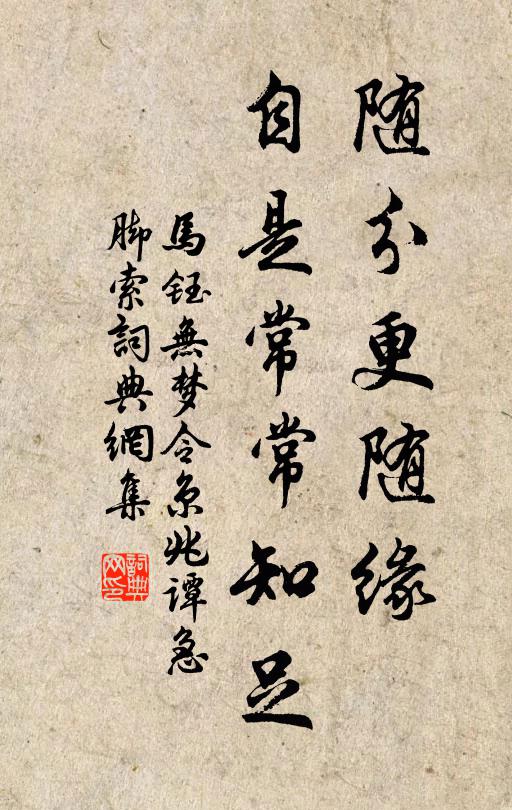 随分更随緣
自是常常知足
馬鈺無梦令京兆谭急
脚索詞典網集
詞典网印